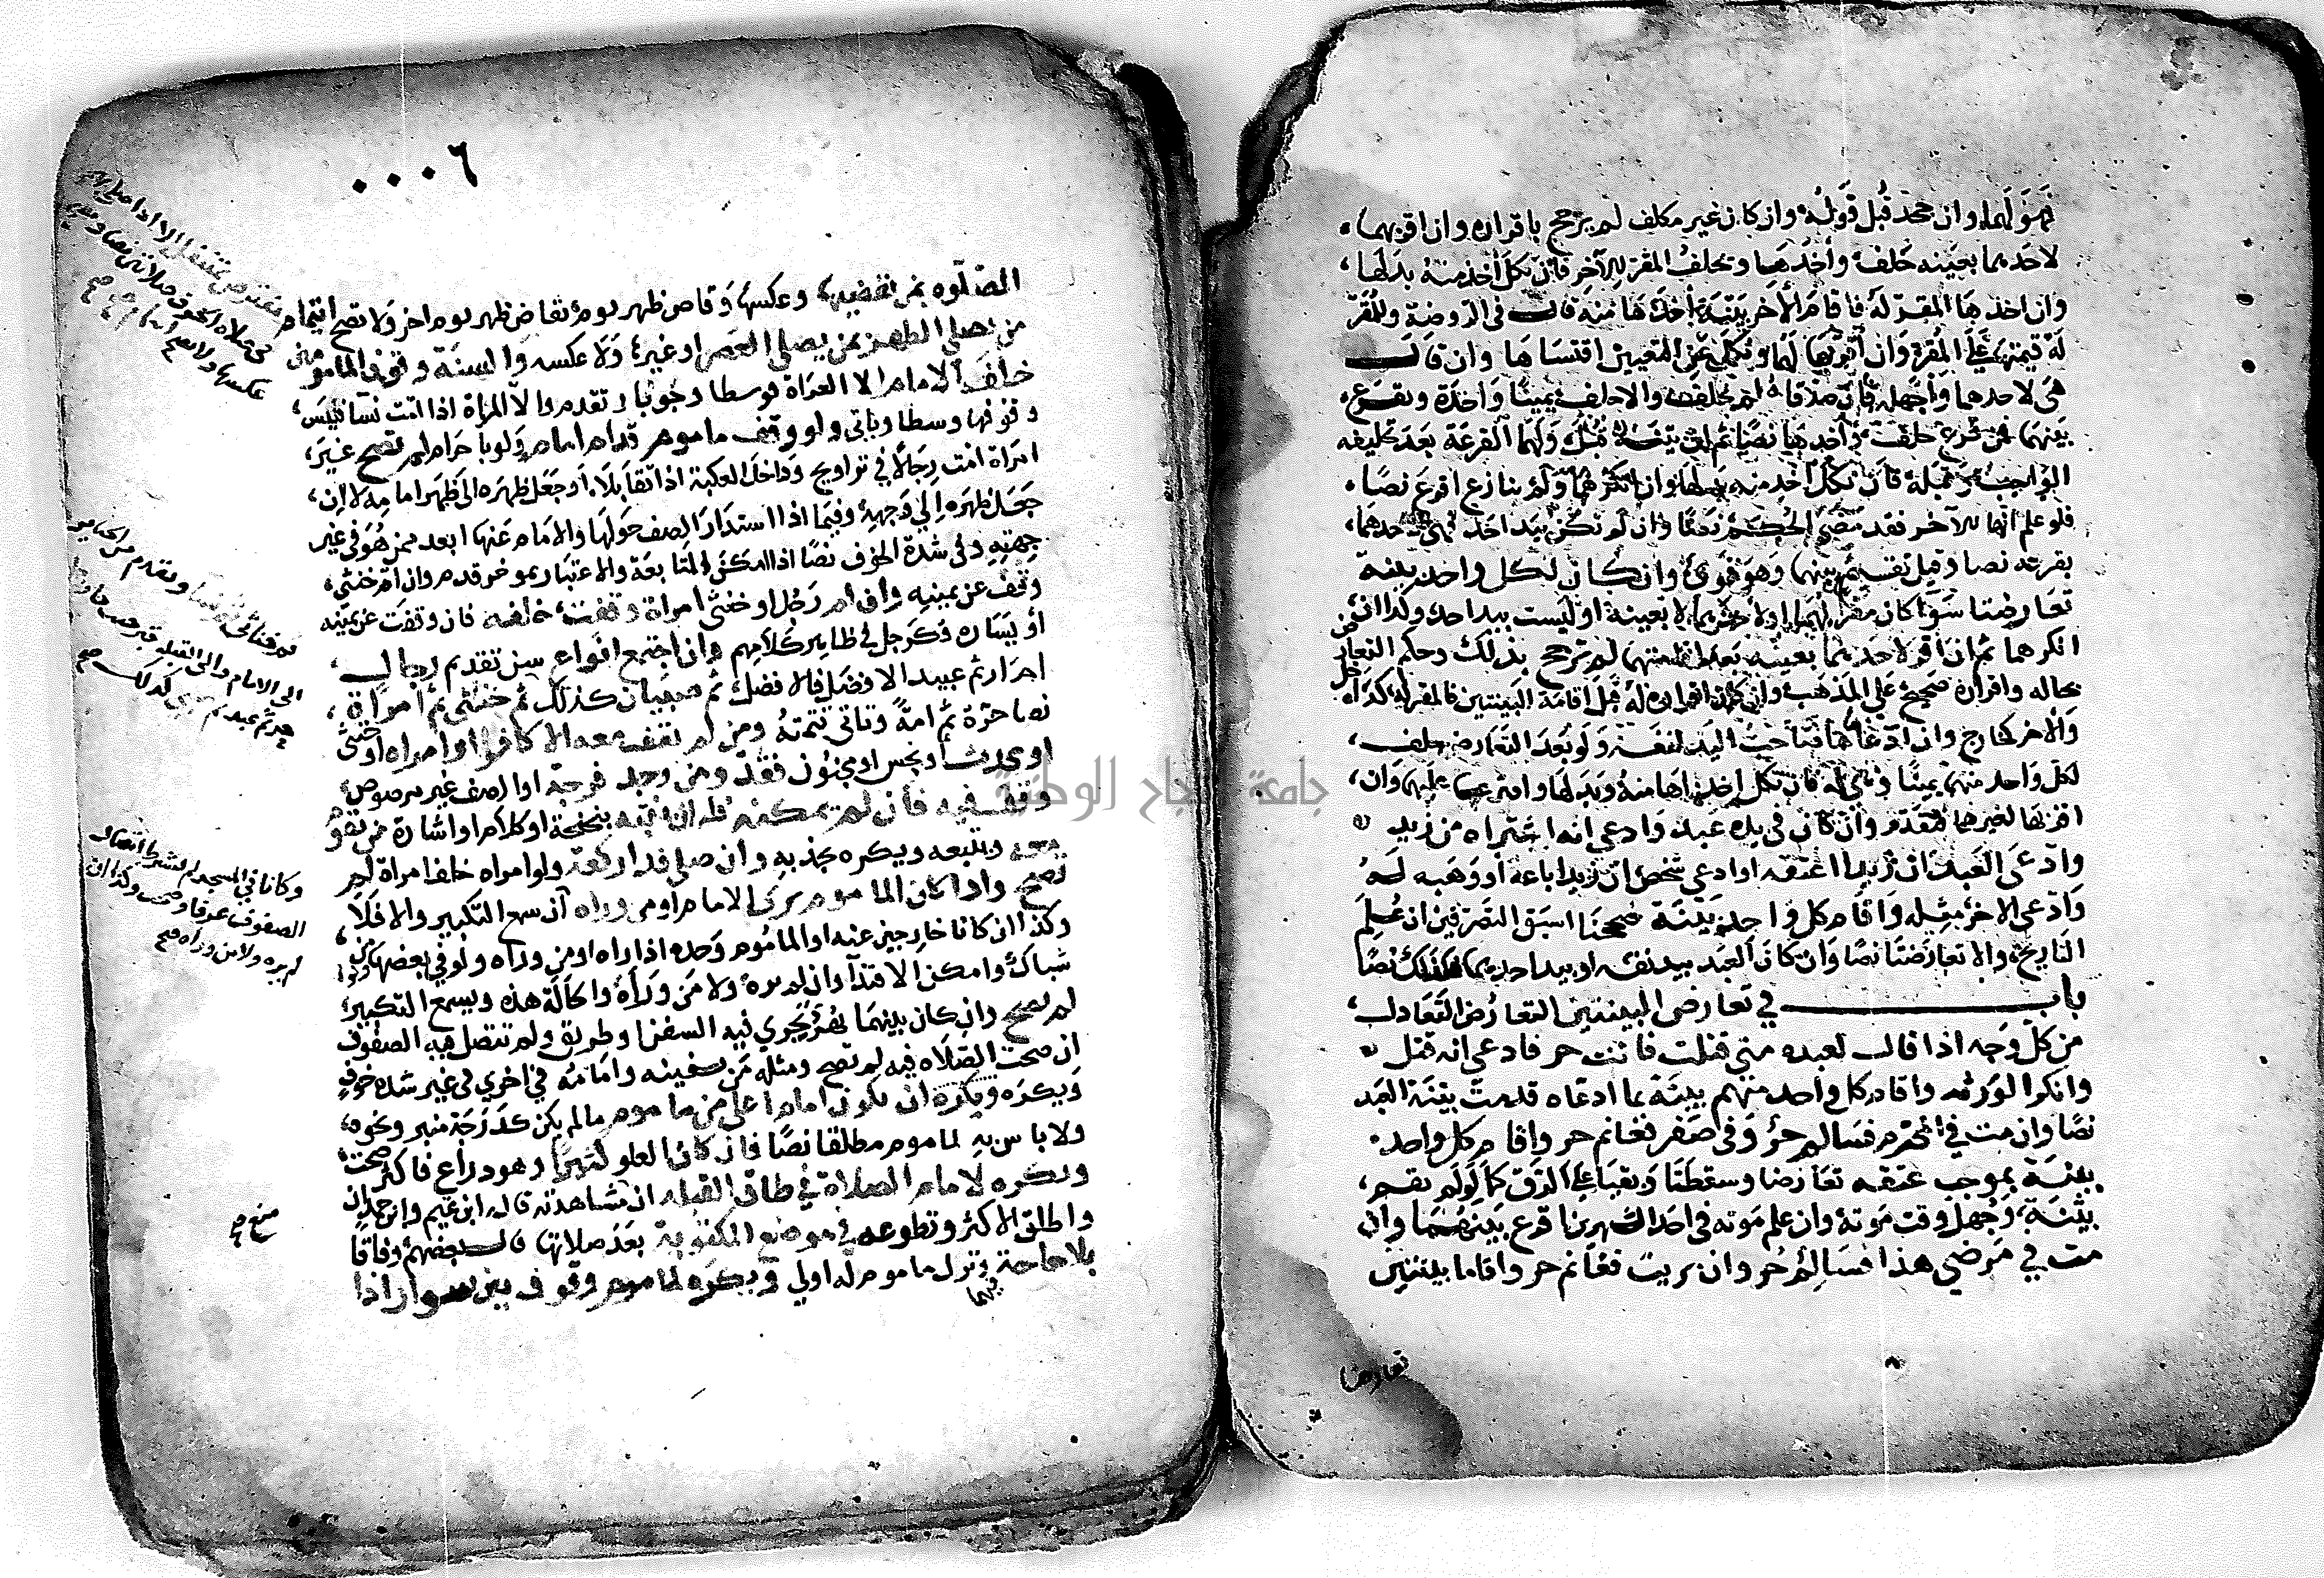 فهو لهما وان جحد قبل قوله وان كان غير مكلف لم يرجح باقراره وان اقر بهما
لاحدهما بعينه حلف واخذها ويحلف المقر للآخر فان نكل اخذ منه بدلها
وان اخذها المقر له فاقام الآخر بينة اخذها منه قال في الروضة وللمقر
له قيمتها على المقر وان اقر بها لهما ونكل عن التعيين اقتسماها وان قال
هي لاحدهما واجهله فان صدقاه لم يحلف والا حلف يمينا واحدة ويقرع
بينهما فمن قرع حلف واخذها نصا ثم ان بينه قبل ولهما القرعة بعد تحليفه
الواجب وقبله فان نكل اخذ منه بدلها وان انكرهما ولم ينازع اقرع نصا
فلو علم انها للآخر فقد مضى الحكم نصا وان لم تكن بيد احد فهي لاحدهما
بقرعة نصا وقيل تقسم بينهما وهو قوي وان كان لكل واحد بينة
تعارضتا سوا كان مقرا لهما او لاحدهما لا بعينه او ليست بيد احد وكذا ان
انكرهما ثم ان اقر لاحدهما بعينه بعد اقامتهما لم ترجح بذلك وحكم التعارض
بحاله واقراره صحيح على المذهب وان كان اقراره له قبل اقامة البينتين فالمقر له كداخل
والآخر كخارج وان ادعاها صاحب اليد لنفسه ولو بعد التعارض حلف
لكل واحد منهما يمينا وهي له فان نكل اخذاها منه وبدلها واقترعا عليهما وان
اقر بها لغيرهما فتقدم وان كان في يده عبد وادعى انه اشتراه من زيد
وادعى العبد ان زيدا اعتقه او ادعى شخص ان زيدا باعه او وهبه له
وادعى الآخر مثله واقام كل واحد بينة صححنا اسبق التصرفين ان علم
التاريخ والا تعارضتا نصا وان كان العبد بيد نفسه او بيد احدهما فكذلك نصا
باب في تعارض البينتين التعارض التعادل
من كل وجه اذا قال لعبده متى قتلت فانت حر فادعى انه قتل
وانكر الورثة واقام كل واحد منهم بينة بما ادعاه قدمت بينة العبد
نصا وان مت في المحرم فسالم حر وفي صفر فغانم حر واقام كل واحد
بينة بموجب عتقه تعارضا وسقطتا وبقيا على الرق كما لو لم تقم
بينة وجهل وقت موته وان علم موته في احد الشهرين اقرع بينهما وان
مت في مرضي هذا فسالم حر وان بريت فغانم حر واقاما بينتين
تعارضا
٠٠٠٦
الصلوة بمن يقضيها وعكسها وقاض ظهر يوم بقاض ظهر يوم اخر ولا يصح ائتمام
من يصلي الظهر بمن يصلي العصر او غيرها ولا عكسه والسنة وقوف المامومين
خلف الامام الا العراة فوسطا وجوبا وتقدم والا المراة اذا امت نسا فيسن
وقوفها وسطا وياتي ولو وقف ماموم قدام امام ولو باحرام لم تصح غير
امراة امت رجالا في تراويح وداخل الكعبة اذا تقابلا او جعل ظهره الى ظهر امامه لا ان
جعل ظهره الى وجهه وفيما اذا استدار الصف حولها والامام عنها ابعد ممن هو في غير
جهته وفي شدة الخوف نصا اذا امكن المتابعة والاعتبار بموخر قدم وان ام خنثى
وقف عن يمينه وان ام رجل او خنثى امراة وقفت خلفه فان وقفت عن يمينه
او يساره فكرجل في ظاهر كلامهم وان اجتمع انواع سن تقديم رجال
احرار ثم عبيد الافضل فالافضل ثم صبيان كذلك ثم خنثى ثم امراة
نصا حرة ثم امة وتاتي تتمته ومن لم يقف معه الا كافر او امراه او خنثى
او محدث او نجس او مجنون ففذ ومن وجد فرجة او الصف غير مرصوص
وقف فيه فان لم يمكنه فله ان ينبه بنحنحة او كلام او اشارة من يقوم
معه ويتبعه ويكره بجذبه وان صلى فذا ركعة ولو امراه خلف امراة لم
تصح واذا كان الماموم يرى الامام او من وراه ان سمع التكبير والا فلا
وكذا ان كانا خارجين عنه او الماموم وحده اذا راه او من وراه ولو في بعضها من
شباك وامكن الاقتدا وان لم يره ولا من وراه والحالة هذه ويسمع التكبير
لم يصح وان كان بينهما نهر تجري فيه السفن او طريق ولم تتصل فيه الصفوف
ان صحت الصلاه فيه لم تصح ومثله من بسفينه وامامه في اخرى في غير شدة خوف
ويكره ان يكون امام اعلى من ماموم ما لم يكن كدرجة منبر ونحوه
ولا باس به لماموم مطلقا نصا فان كان العلو كثيرا وهو ذراع فاكثر صحت
ويكره لامام الصلاة في طاق القبله ان منع مشاهدته قاله ابن تميم وابن حمدان
واطلق الاكثر وتطوعه في موضع المكتوبة بعد صلاتها قال بعضهم وفاقا
بلا حاجة فيهما وترك ماموم له اولى ويكره لماموم وقوف بين سوار اذا
وكانا في المسجد لم يشترط اتصال
الصفوف عرفا وصحت وكذا ان
لم يره ولا من وراه صح
منع صح